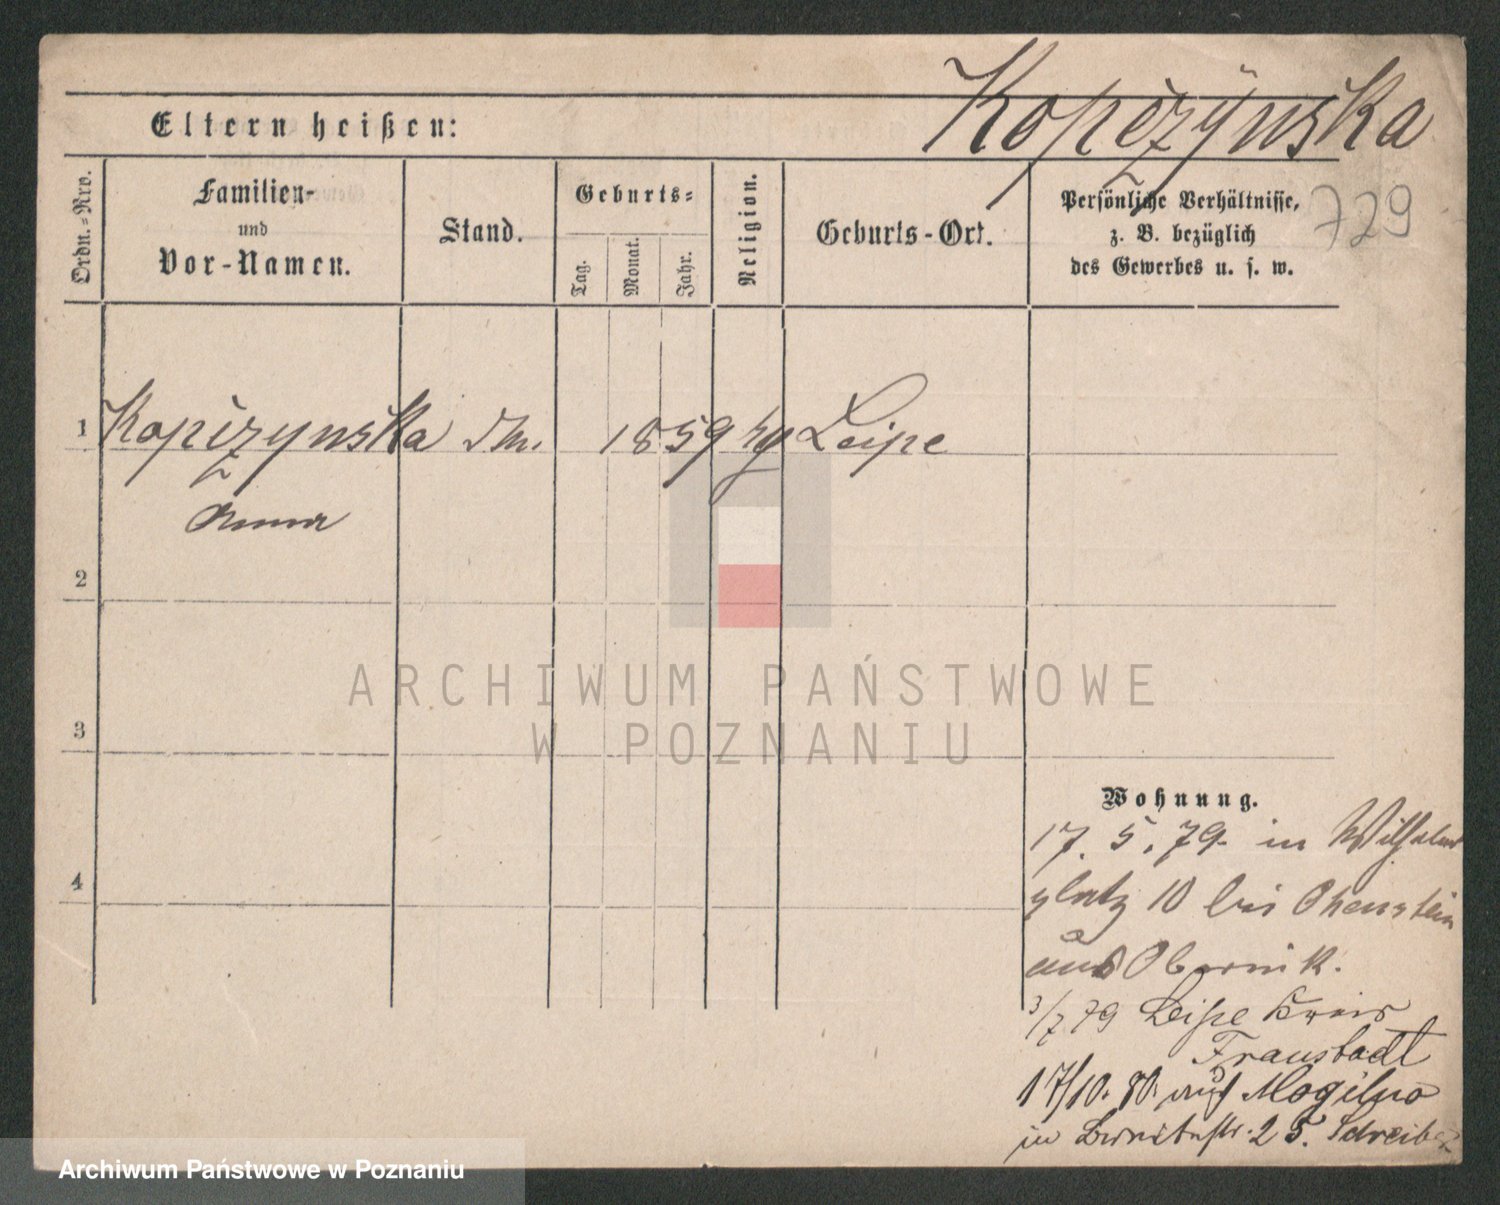 Kopczynska
Eltern heißen:
729
Ordn.-Nro.
Familien-
und
Vor-Namen.
Stand.
Geburts-
Tag.
Monat.
Jahr.
Religion.
Geburts-Ort.
Persönliche Verhältnisse,
z. B. bezüglich
des Gewerbes u. s. w.
1 Kopczynska 1859 Leipe
Anna
2
ARCHIWUM PAŃSTWOWE
W POZNANIU
3
Wohnung.
17. 5. 79. in Wilhelms
4
platz 10 bei Ohnstein
aus Obornik.
3/7 79 Leipe Kreis
Fraustadt
17/10. 80. aus Mogilno
in Breitestr. 25. Schreiber
Archiwum Państwowe w Poznaniu